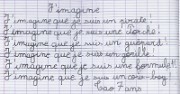 J'imagine
J'imagine que je suis un pirate!
J'imagine que je suis une cloche!
J'imagine que je suis un guépard!
J'imagine que je suis un gorille!
J'imagine que je suis une formule 1!
J'imagine que je suis un cow-boy!
7 ans